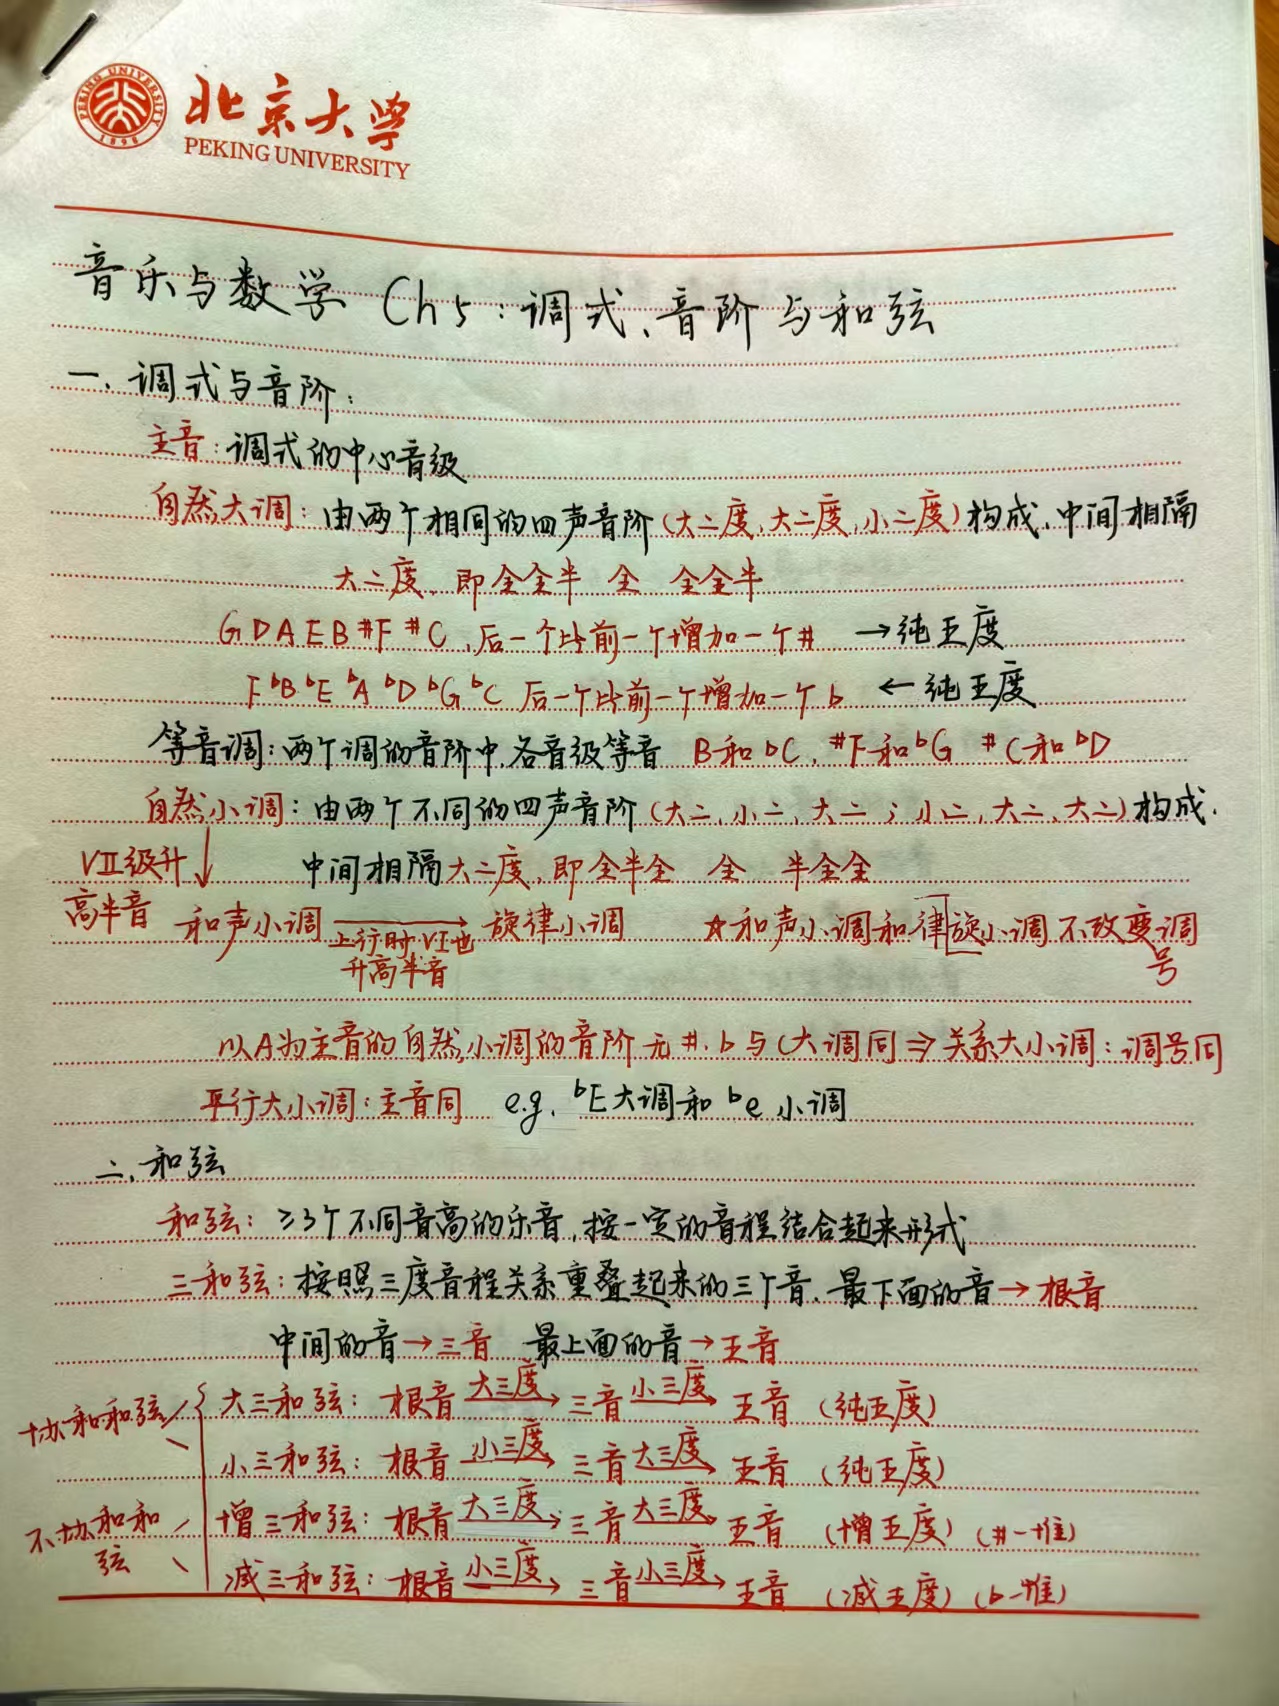 北京大学
PEKING UNIVERSITY
PEKING UNIVERSITY
1898
音乐与数学 Ch5：调式、音阶与和弦
一、调式与音阶：
主音：调式的中心音级
自然大调：由两个相同的四声音阶（大二度，大二度，小二度）构成，中间相隔
大二度，即全全半 全 全全半
G D A E B #F #C，后一个比前一个增加一个# →纯五度
F bB bE bA bD bG bC 后一个比前一个增加一个b ←纯五度
等音调：两个调的音阶中，各音级等音 B和bC，#F和bG #C和bD
自然小调：由两个不同的四声音阶（大二，小二，大二；小二，大二、大二）构成.
VII级升高半音 中间相隔大二度，即全半全 全 半全全
和声小调 上行时VI也升高半音 旋律小调 ☆和声小调和律旋小调不改变调号
以A为主音的自然小调的音阶无#、b与C大调同⇒关系大小调：调号同
平行大小调：主音同 e.g. bE大调和be小调
二、和弦
和弦：≥3个不同音高的乐音，按一定的音程结合起来形式
三和弦：按照三度音程关系重叠起来的三个音，最下面的音→根音
中间的音→三音 最上面的音→五音
协和和弦
大三和弦：根音 大三度→ 三音 小三度→ 五音（纯五度）
小三和弦：根音 小三度→ 三音 大三度→ 五音（纯五度）
不协和和弦
增三和弦：根音 大三度→ 三音 大三度→ 五音（增五度）（#一堆）
减三和弦：根音 小三度→ 三音 小三度→ 五音（减五度）（b一堆）